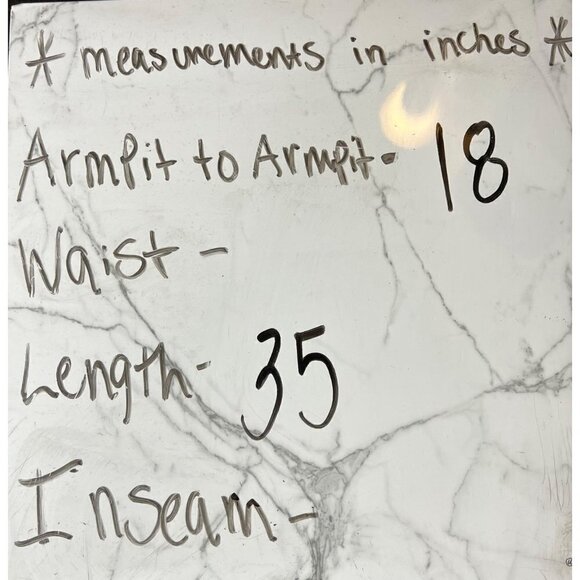 * measurements in inches *
Armpit to Armpit- 18
Waist -
Length- 35
Inseam -